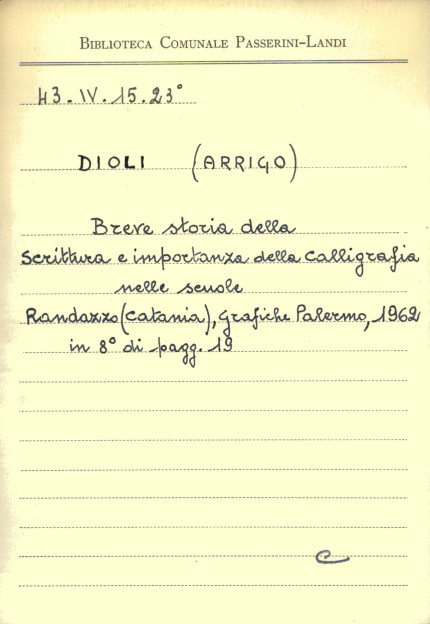 BIBLIOTECA COMUNALE PASSERINI-LANDI
43.IV.15.23°
DIOLI (ARRIGO)
Breve storia della
Scrittura e importanza della calligrafia
nelle scuole
Randazzo (Catania), Grafiche Palermo, 1962
in 8° di pagg. 19
C